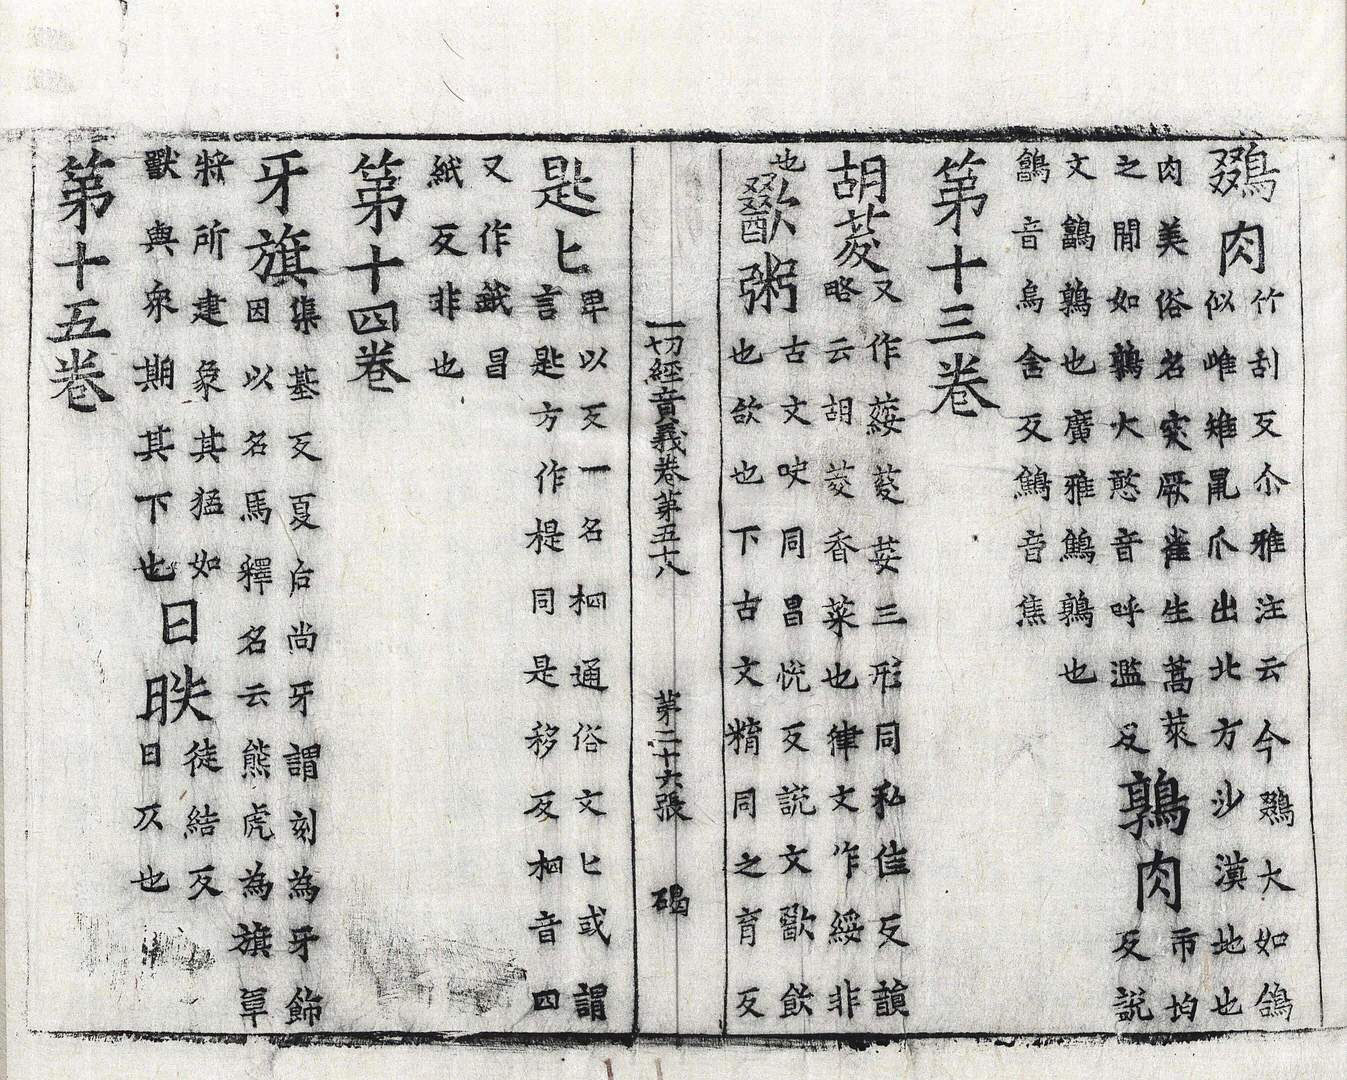 鵽肉竹刮反尒雅注云今鵽大如鴿
似雌雉鼠爪出北方沙漠地也
肉美俗名突厥雀生蒿萊 鶉肉市均
之閒如鶉大憨音呼濫反 反説
文鷂鶉也廣雅鷦鶉也
鷂音烏含反鷦音焦
第十三卷
胡荽又作荾葰荌三形同私佳反韻
略云胡荽香菜也律文作綏非
也
歠粥古文吷同昌悅反説文歠飲
也欱也下古文䊠同之育反
一切經音義卷第五十八 第二十六張 碣
匙匕卑以反一名柶通俗文匕或謂
言匙方作㮛同是移反柶音四
又作䤦昌
紙反非也
第十四卷
牙旗集基反夏后尚牙謂刻為牙飾
因以名馬釋名云熊虎為旗軍
將所建象其猛如 日昳徒結反
獸與衆期其下也 日仄也
第十五卷